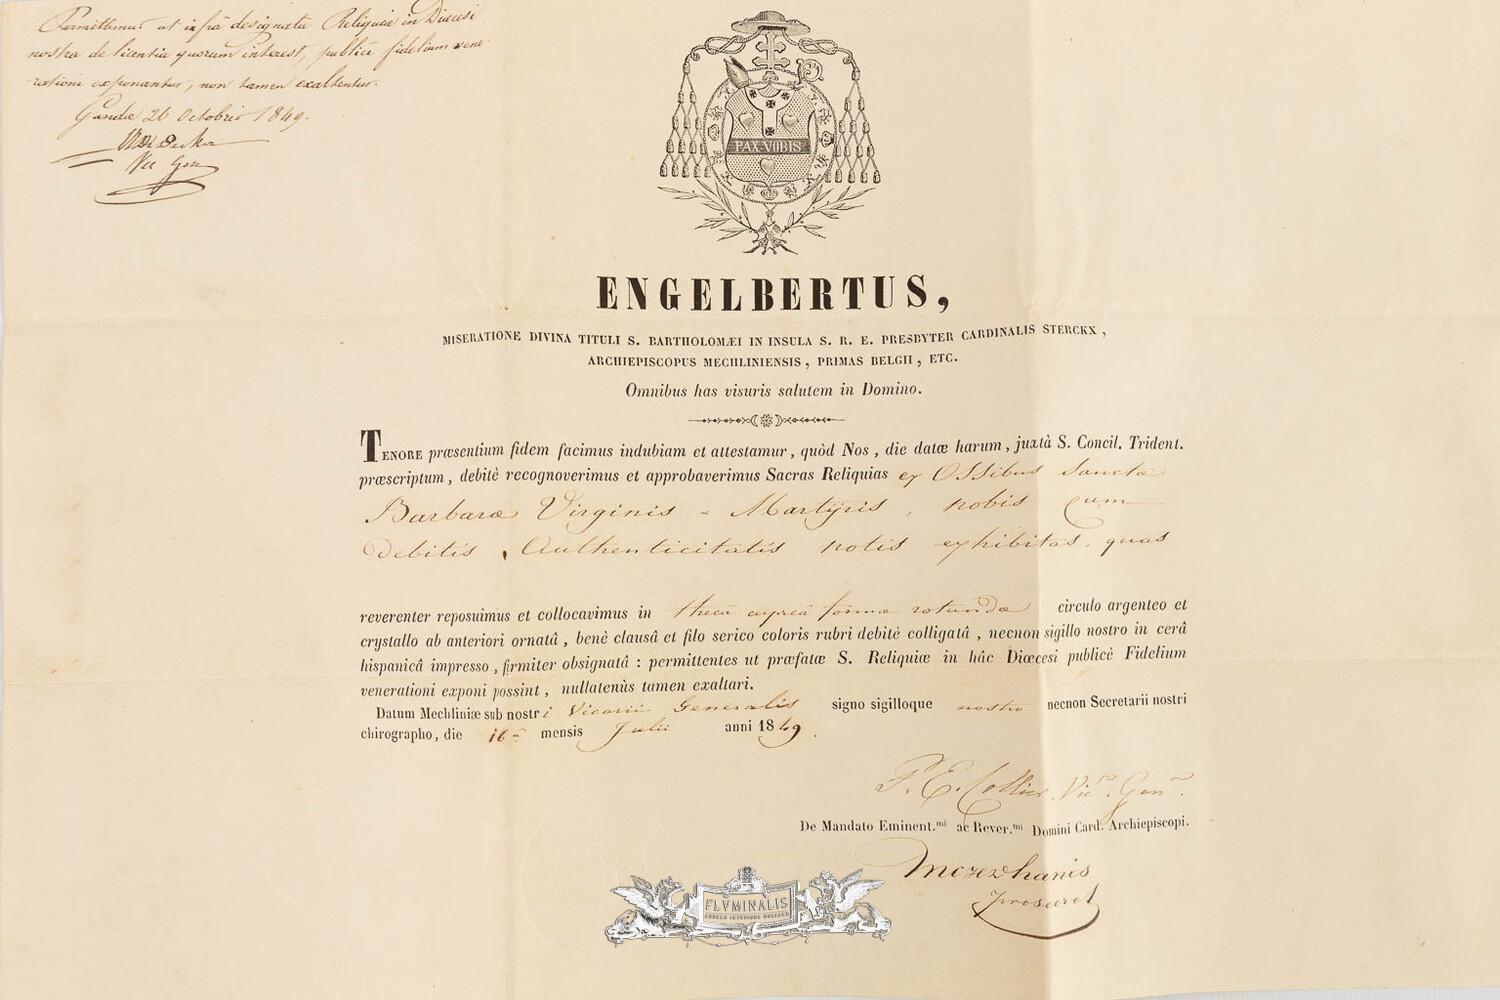 Permittimus ut infrà designatae Reliquiae in Dioecesi
nostra de licentia quorum interest, publicè fidelium vene-
rationi exponantur, non tamen exaltentur.
Gandae 26 Octobris 1849.
Vic Gen
PAX VOBIS
ENGELBERTUS,
MISERATIONE DIVINA TITULI S. BARTHOLOMÆI IN INSULA S. R. E. PRESBYTER CARDINALIS STERCKX,
ARCHIEPISCOPUS MECHLINIENSIS, PRIMAS BELGII, ETC.
Omnibus has visuris salutem in Domino.
TENORE præsentium fidem facimus indubiam et attestamur, quòd Nos, die datæ harum, juxtà S. Concil. Trident.
præscriptum, debitè recognoverimus et approbaverimus Sacras Reliquias ex Ossibus Sanctæ
Barbaræ Virginis - Martÿris, nobis cum
debitis Authenticitatis notis exhibitas, quas
reverenter reposuimus et collocavimus in thecâ cupreâ formæ rotundæ circulo argenteo et
crystallo ab anteriori ornatâ, benè clausâ et filo serico coloris rubri debitè colligatâ, necnon sigillo nostro in cerâ
hispanicâ impresso, firmiter obsignatâ : permittentes ut præfatæ S. Reliquiæ in hâc Diœcesi publicè Fidelium
venerationi exponi possint, nullatenùs tamen exaltari.
Datum Mechliniæ sub nostri Vicarii Generalis signo sigilloque nostro necnon Secretarii nostri
chirographo, die 16â mensis Julii anni 1849.
P. E. Collier, Vic. Gen.
De Mandato Eminent.mi ac Rever.mi Domini Card. Archiepiscopi.
prosecret
FLVMINALIS